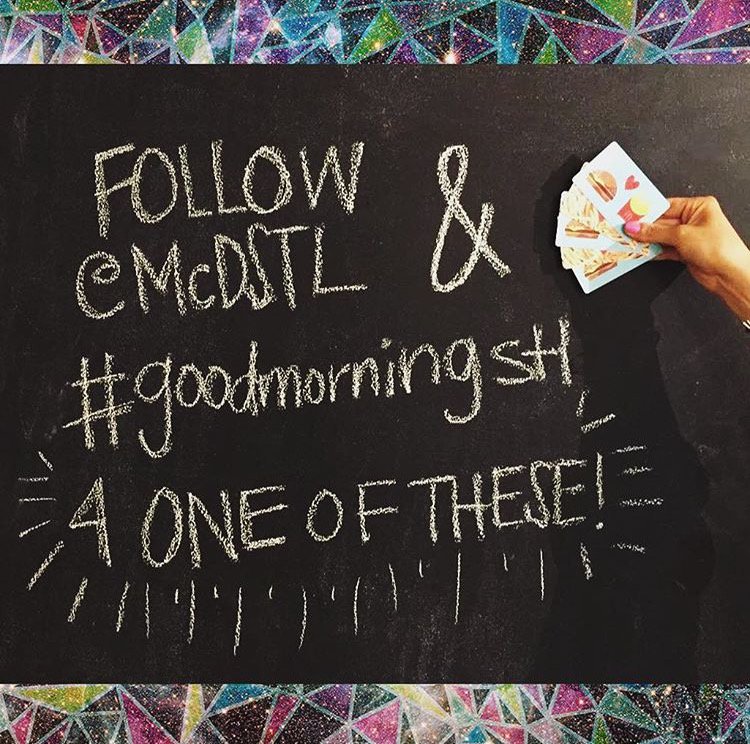 FOLLOW &
@McDSTL
#goodmorningstl
4 ONE OF THESE!